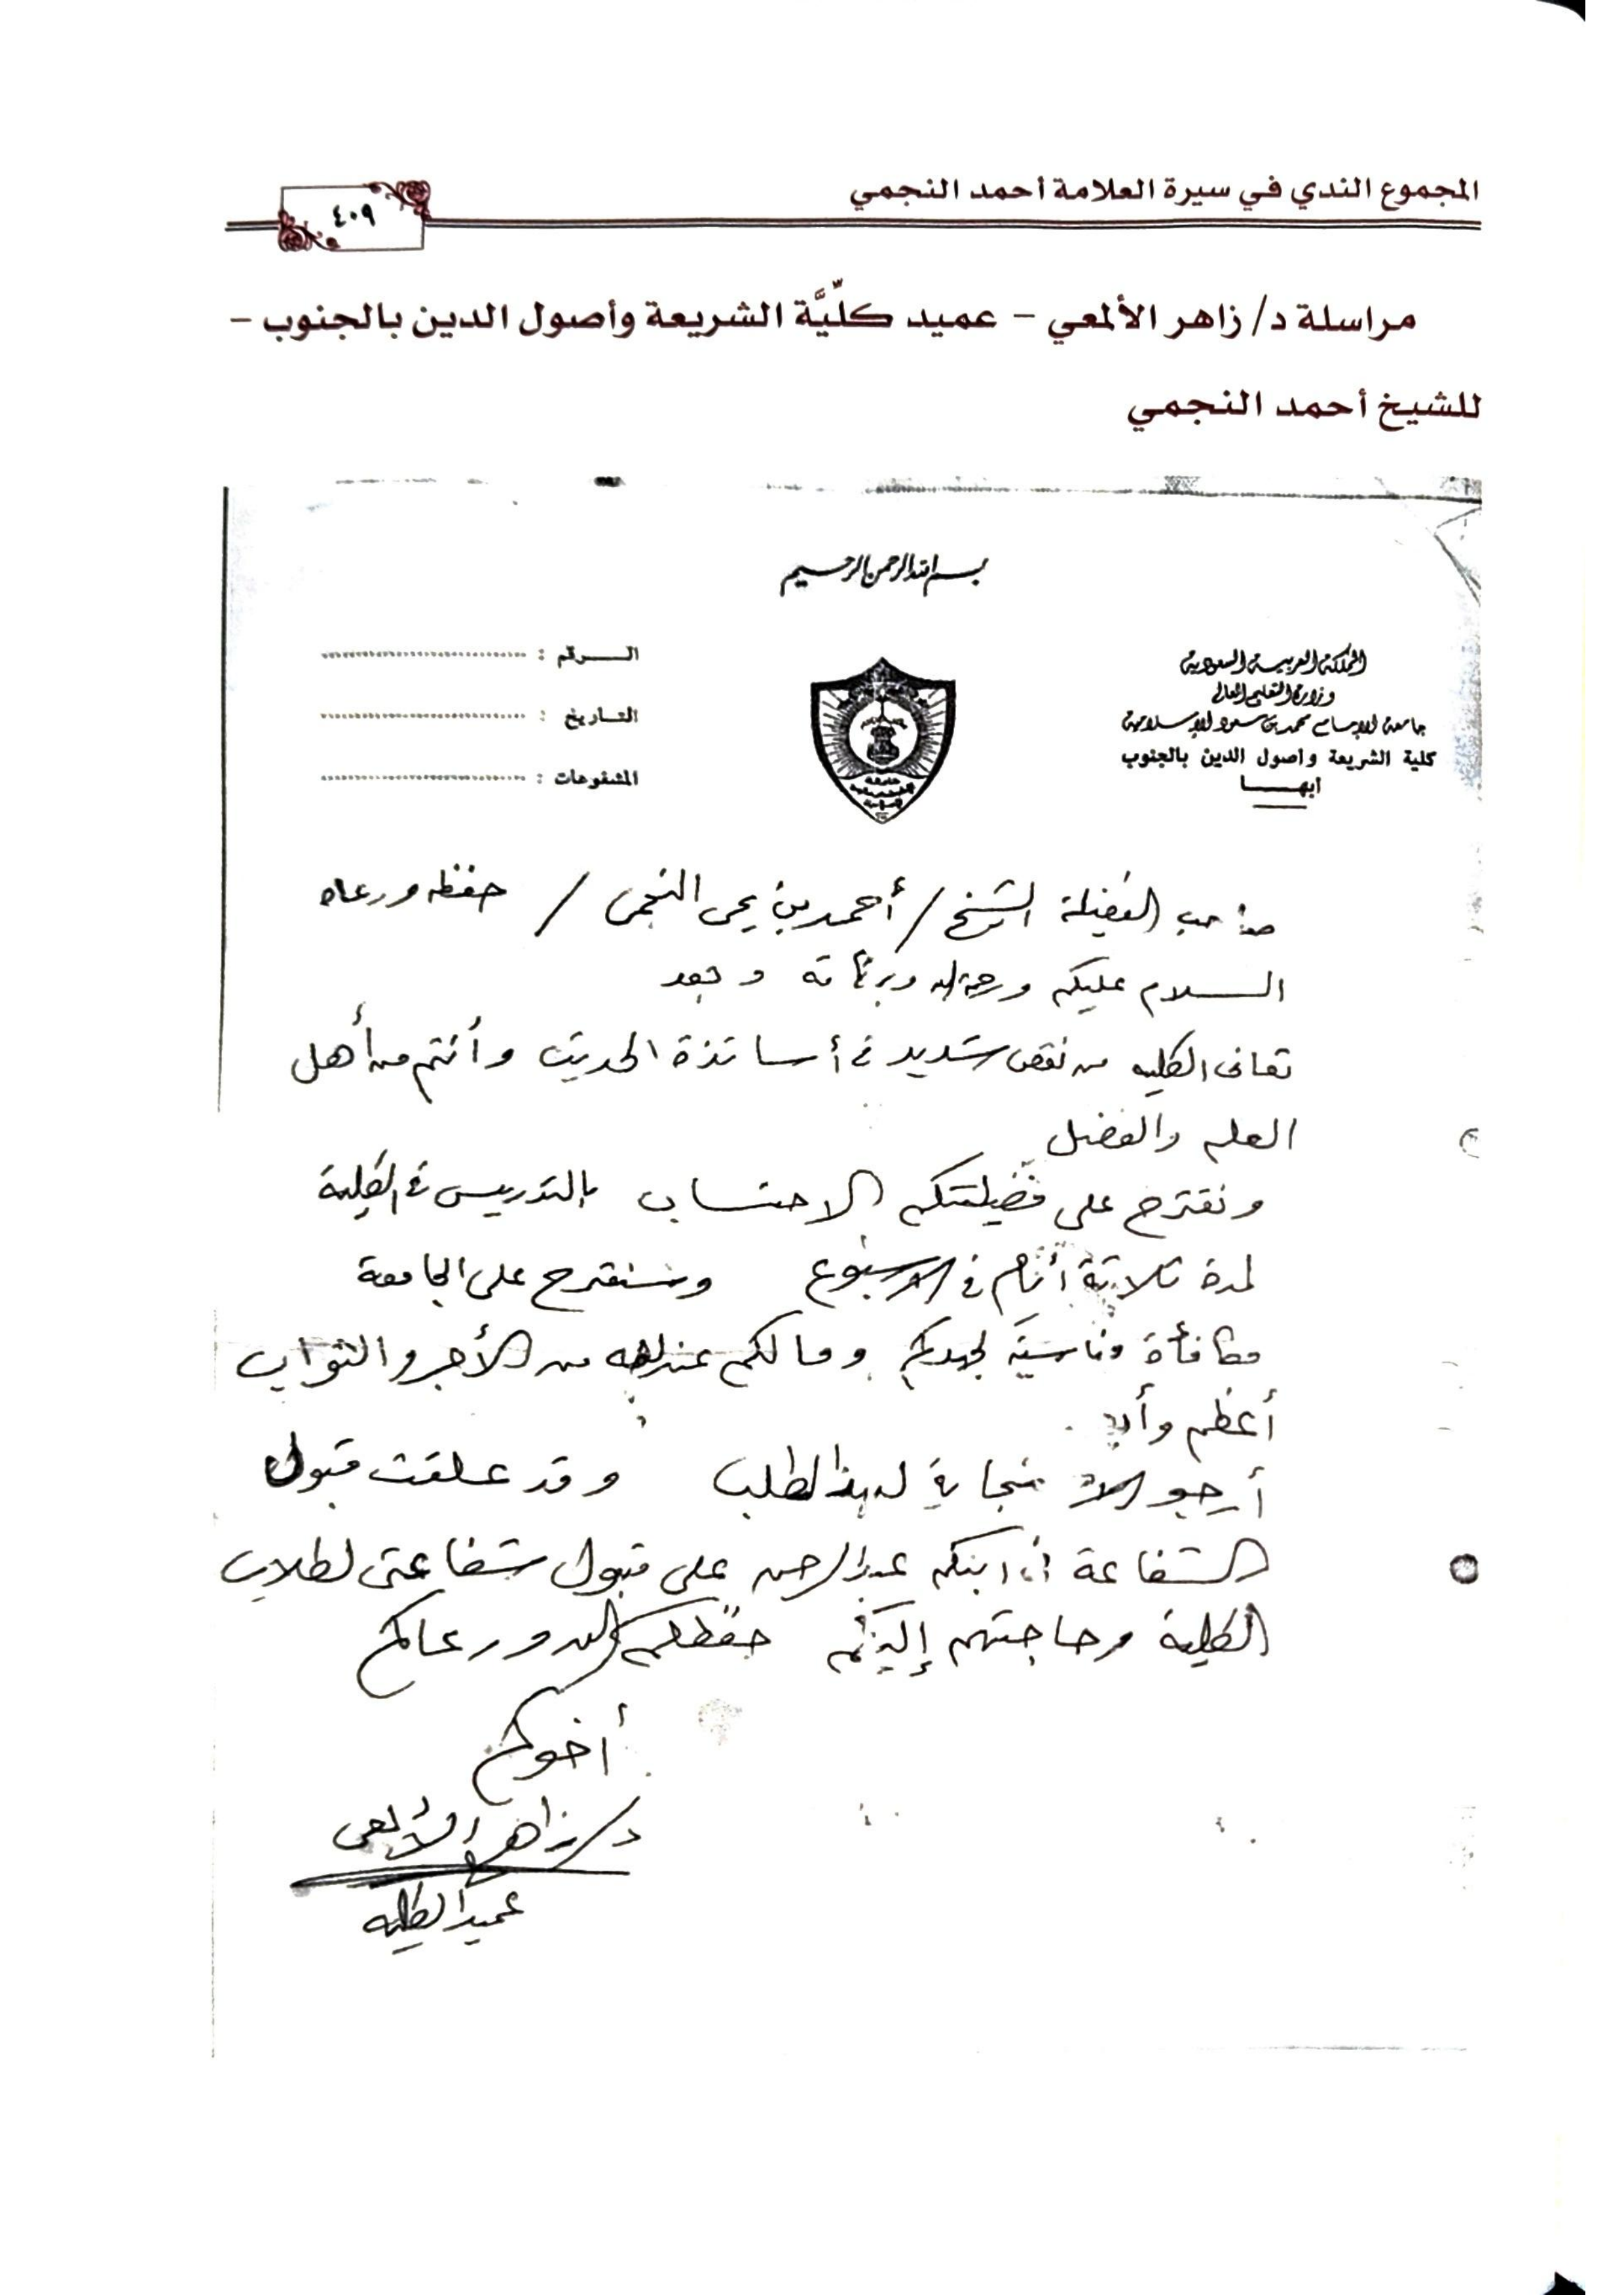 المجموع الندي في سيرة العلامة أحمد النجمي
٤٠٩
مراسلة د/ زاهر الألمعي - عميد كلِّيَّة الشريعة وأصول الدين بالجنوب -
للشيخ أحمد النجمي
بسم الله الرحمن الرحيم
المملكة العربية السعودية
وزارة التعليم العالي
جامعة الإمام محمد بن سعود الإسلامية
كلية الشريعة وأصول الدين بالجنوب
أبها
الرقم :
التاريخ :
المشفوعات :
صاحب الفضيلة الشيخ / أحمد بن يحي النجمى / حفظه ورعاه
السلام عليكم ورحمة الله وبركاته وبعد
تعانى الكليه من نقص شديد في أساتذة الحديث وأنتم من أهل
العلم والفضل
ونقترح على فضيلتكم الاحتساب بالتدريس في الكلية
لمدة ثلاثة أيام في الاسبوع وسنقترح على الجامعة
مكافأة مناسبة لجهدكم ومالكم عند الله من الأجر والثواب
أعظم
أرجو الاستجابة لهذا الطلب وقد علقت قبول
الشفاعة ابنكم عبد الرحمن على قبول شفاعتى لطلاب
الكلية وحاجتهم إليكم حفظكم الله ورعاكم
أخوكم
د/ زاهر الألمعى
عميد الكليه